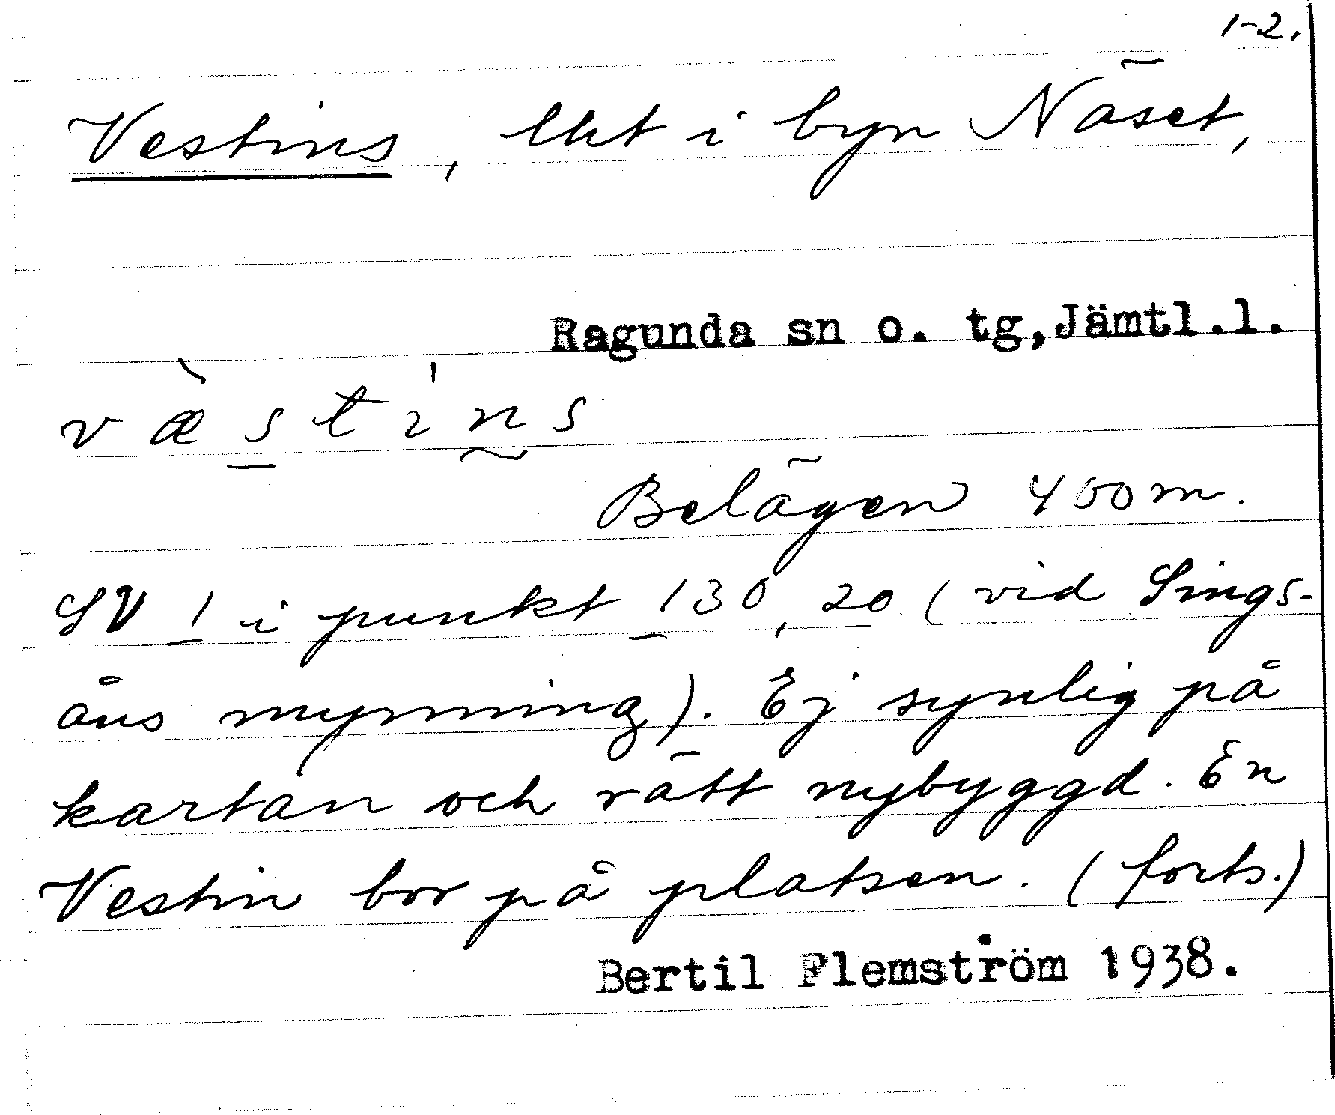 1-2.
Vestins, lht i byn Näset,
Ragunda sn o. tg, Jämtl.l.
væ̀stins
Belägen 400 m.
SV 1 i punkt 130, 20 (vid Sings-
åns mynning). Ej synlig på
kartan och rätt nybyggd. En
Vestin bor på platsen. (forts.)
Bertil Flemström 1938.